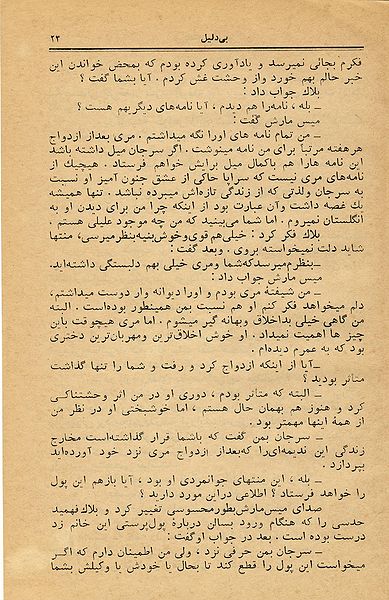 بی‌دلیل
۲۳
فکرم بجائی نمیرسد و یادآوری کرده بودم که بمحض خواندن این
خبر حالم بهم خورد واز وحشت غش کردم . آیا بشما گفت ؟
بلاك جواب داد :
ـ بله ، نامه‌را هم دیدم ، آیا نامه‌های دیگربهم هست ؟
میس مارش گفت :
ـ من تمام نامه های اورا نگه میداشتم . مری بعداز ازدواج
هرهفته مرتباً برای من نامه مینوشت . اگر سرجان میل داشته باشد
این نامه هارا هم باکمال میل برایش خواهم فرستاد . هیچیك از
نامه‌های مری نیست که سراپا حاکی از عشق جنون آمیز او نسبت
به سرجان ولذتی که از زندگی تازه‌اش میبرده نباشد . تنها همیشه
یك غصه داشت وآن عبارت بود از اینکه چرا من برای دیدن او به
انگلستان نمیروم . اما شما می‌بینید که من چه موجود علیلی هستم .
بلاك فکر کرد : خیلی‌هم قوی‌وخوش‌بنیه‌بنظرمیرسی، منتها
شاید دلت نمیخواسته بروی . وبعد گفت :
ـ بنظرم‌میرسدکه‌شما ومری خیلی بهم دلبستگی داشته‌اید.
میس مارش جواب داد :
ـ من شیفتهٔ مری بودم و اورا دیوانه وار دوست میداشتم،
دلم میخواهد فکر کنم او هم نسبت بمن همینطور بوده‌است . البته
من گاهی خیلی بداخلاق وبهانه گیر میشوم . اما مری هیچوقت باین
چیز ها اهمیت نمیداد . او خوش اخلاق‌ترین ومهربان‌ترین دختری
بود که به عمرم دیده‌ام .
ـ آیا از اینکه ازدواج کرد و رفت و شما را تنها گذاشت
متأثر بودید ؟
ـ البته که متأثر بودم ، دوری او در من اثر وحشتناکی
کرد و هنوز هم بهمان حال هستم ، اما خوشبختی او در نظر من
از همهٔ اینها مهمتر بود .
ـ سرجان بمن گفت که باشما قرار گذاشته‌است مخارج
زندگی این ندیمه‌ای‌را که‌بعداز ازدواج مری نزد خود آورده‌اید
بپردازد .
ـ بله ، این منتهای جوانمردی او بود ، آیا بازهم این پول
را خواهد فرستاد ؟ اطلاعی دراین مورد دارید ؟
صدای میس‌مارش‌بطورمحسوسی تغییر کرد و بلاك فهمید
حدسی را که هنگام ورود بسالن دربارهٔ پول‌پرستی این خانم زد
درست بوده است . بعد در جواب اوگفت :
ـ سرجان بمن حرفی نزد ، ولی من اطمینان دارم که اگر
میخواست این پول را قطع کند تا بحال یا خودش یا وکیلش بشما